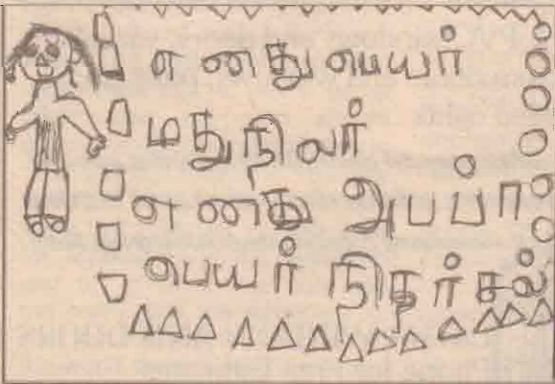 எனது பெயர்
மதுநிவர்
எனது அப்பா
பெயர் நிதர்சல்